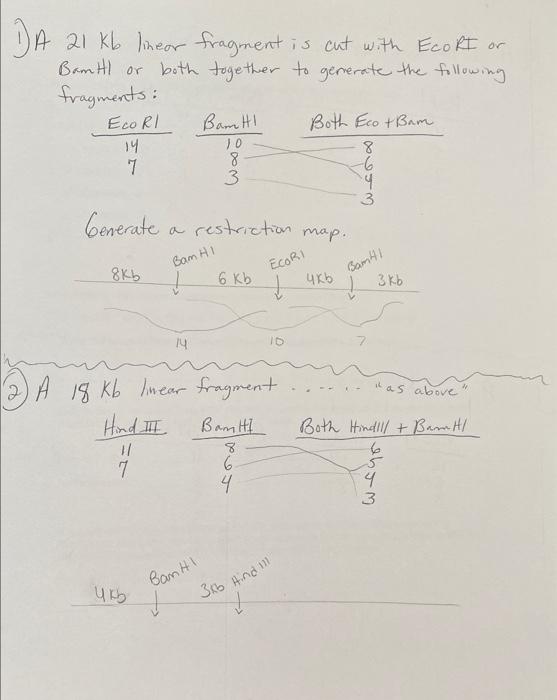 1) A 21 Kb linear fragment is cut with EcoRI or
BamHI or both together to generate the following
fragments:
EcoRI BamHI Both Eco + Bam
14 10 8
7 8 6
3 4
3
Generate a restriction map.
8Kb BamHI 6 Kb EcoRI 4Kb BamHI 3Kb
14 10 7
2) A 18 Kb linear fragment ...... "as above"
Hind III BamHI Both HindIII + BamHI
11 8 6
7 6 5
4 4
3
4Kb BamHI 3Kb HindIII